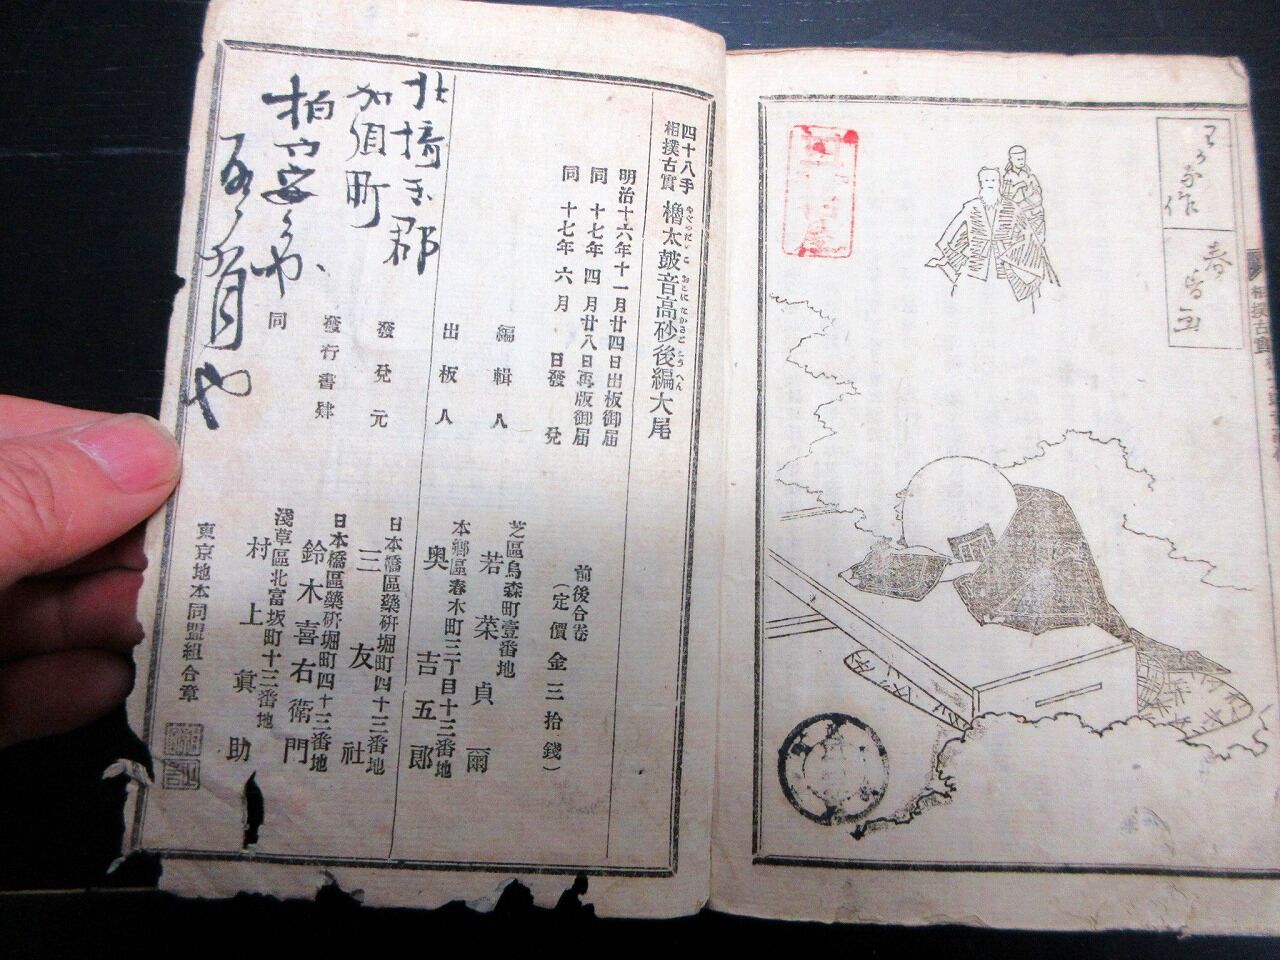 春香画
作
相撲古實
四十八手
相撲古實
櫓太鼓音高砂後編大尾
やぐらだいこおとにたかさごこうへん
明治十六年十一月廿四日出板御届
同十七年四月廿八日再版御届
同十七年六月 日發兌
前後合卷
(定價金三拾錢)
編輯人
芝區烏森町壹番地
若菜貞爾
出板人
本鄕區春木町三丁目十二番地
奥吉五郎
發兌元
日本橋區藥硏堀町四十三番地
三友社
發行書肆
日本橋區藥硏堀町四十三番地
鈴木喜右衛門
同
淺草區北富坂町十三番地
村上眞助
東京地本同盟組合章
北埼玉郡
加須町